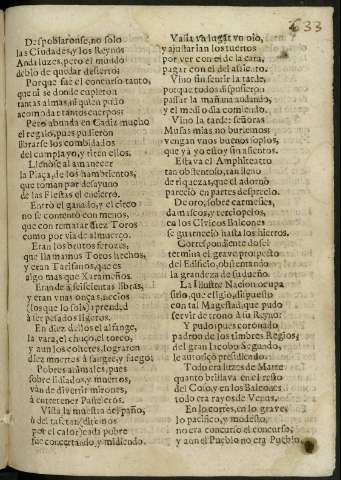 633
Despoblaronse, no solo
las Ciudades, y los Reynos
Andaluzes, pero el mundo
deblo de quedar desierto:
Porque fue el concurso tanto,
que ni se donde cupieron
tantas almas, ni quien pudo
acomodar tantos cuerpos:
Pero abunda en Cadiz mucho
el regalo, pues pudieron
librarse los combidados
del cumplayo, y riten ellos.
Llenòse al amanecer
la Plaça, de los hambrientos,
que toman por desayuno
de las Fiestas el encierro.
Entrò el ganado, y el circo
no se contentò con menos,
que con rematar diez Toros
como por via de almuerço.
Eran los brutos ferozes,
que llamamos Toros hechos,
y eran Tarifanos, que es
algo mas que Xarameños.
Eran de à seiscientas libras,
y eran vnas onças, necios
(los que lo sois) aprended
à ser pesados ligeros.
En diez dellos el alfange,
la vara, el chuço, el torco,
y aun los cohetes, lograron
diez muertes à sangre, y fuego:
Pobres animales, pues
sobre lisiados, y muertos,
van de divertir mirones,
à entretener Pasteleros.
Vista la muestra del paño,
ù del tafetan (demos
por el calor) cada pobre
fue concertando, y midiendo.
Vassa và lugar vn ojo,
y ajustarian los tuertos
por ver con el de la cara,
pagar con el del assiento.
Vino sin sentir la tarde,
porque todos dispusieron
passar la mañana andando,
y el medio dia comiendo.
Vino la tarde: señoras
Musas mias no burlemos:
vengan vnos buenos soplos,
que yà yo estoy sin alientos.
Estava el Amphiteatro
tan obstentoso, tan lleno
de riquezas, que el adorno
pareciò en partes desprecio.
De oro, sobre carmesies,
damascos, y terciopelos,
en los Civicos Balcones
se guarneciò hasta los hierros.
Correspondiente dosel
termina el grave prospecto
del Edificio, obstentando
la grandeza de su dueño.
La Ilustre Nacion ocupa
sitio, que eligiò, dispuesto
con tal Magestad, que pudo
servir de trono à su Reyno:
Y pudo, pues coronado
padron de los timbres Regios,
del gran Jacobo Segundo,
se autorizò presidicado.
Todo era luzes de Marte
quanto brillava en el resto
del Coso, y en los Balcones
todo era rayos de Venus.
En lo cortès, en lo grave,
lo pacifico, y modesto,
no era concurso el concurso,
y aun el Pueblo no era Pueblo.